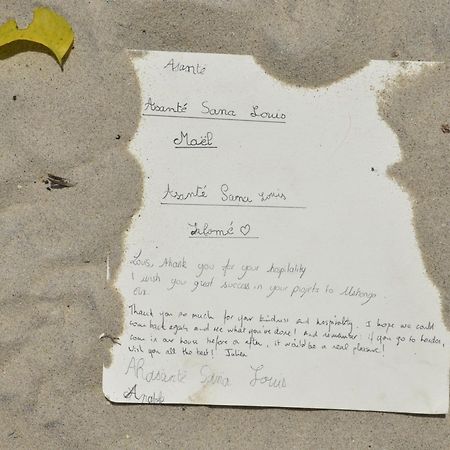 Asanté
Asanté Sana Louis
Maël
Asanté Sana Louis
Salomé ♡
Louis, thank you for your hospitality
I wish you great success in your projets to Matonga
Thank you so much for your kindness and hospitality. I hope we could
come back again and see what you've done! And remember: if you go to
come in our house before or after, it would be a real pleasure!
Wish you all the best! Julien
Asanté Sana Louis